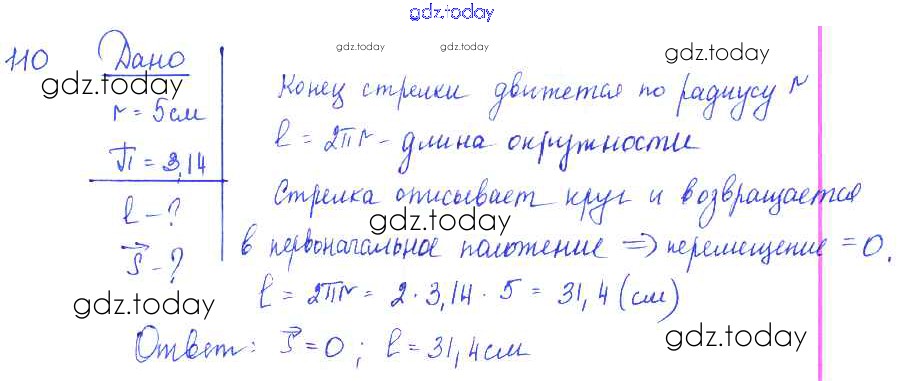 gdz.today
110 Дано
gdz.today gdz.today gdz.today
gdz.today
r = 5см
π = 3,14
l - ?
S⃗ - ?
gdz.today
Конец стрелки движется по радиусу r
l = 2πr - длина окружности
gdz.today
Стрелка описывает круг и возвращается
gdz.today
в первоначальное положение ⇒ перемещение = 0.
l = 2πr = 2 · 3,14 · 5 = 31,4 (см)
gdz.today
Ответ: S⃗ = 0 ; l = 31,4см